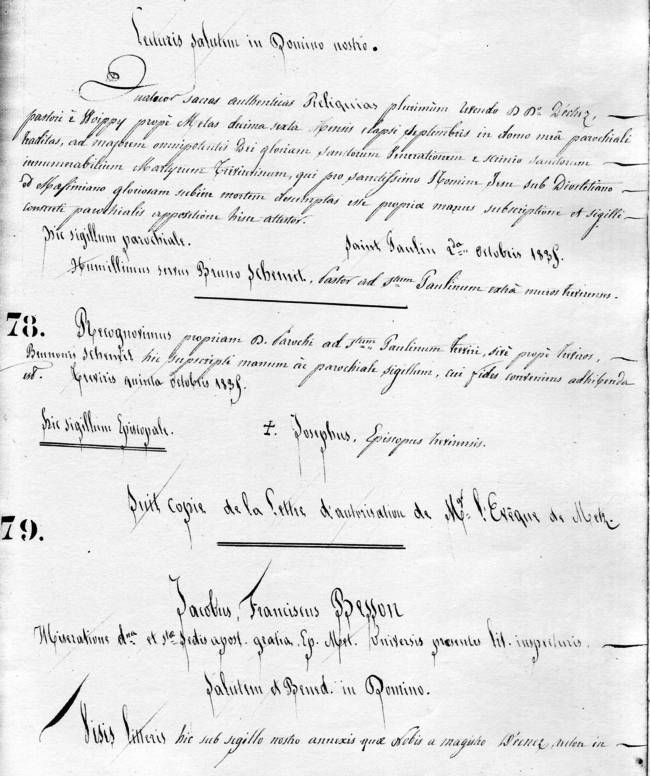 Lecturis salutem in Domino nostro.
Quatuor sacras authenticas Religuias plurimùm Revendo D Dno
pastori è Woippy propè Metas decima sexta Mensis elapsi septembris in domo meâ parochiali
traditas, ad majorem omnipotentis Dei gloriam, sanctorum Venerationem e scrinio sanctorum
innumerabilium Martyrum Trevirensium, qui pro sanctissimo Nomine Jesu sub Diocletiano
et Maximiano gloriosam subiere mortem desumptas esse propriae manus subscriptione et sigilli
consueti parochialis appositione hisce attestor.
Hic sigillum parochiale. Saint Paulin 2da octobris 1835.
Humillimus servus Bruno Schemet, Pastor ad stum Paulinum extrà muros trevirenses.
78. Recognovimus propriam D. Parochi ad stum Paulinum trevir, sivè propè treviros,
Brunonis Schemet hic suprscripti manum ac parochiale sigillum, cui fides conveniens adhibenda
est. Treviris quinta octobris 1835.
Hic sigillum Episcopale. †. Josephus, Episcopus trevirensis.
79. Suit copie de la Lettre d'autorisation de Mgr. l'Evêque de Metz.
Jacobus, Franciscus Besson
Miseratione dna et Stae Sedis apost. gratia, Ep. Met. Universis presentes lit. inspecturis.
Salutem et Bened. in Domino.
Visis litteris hic sub sigillo nostro annexis quae Nobis a magistro